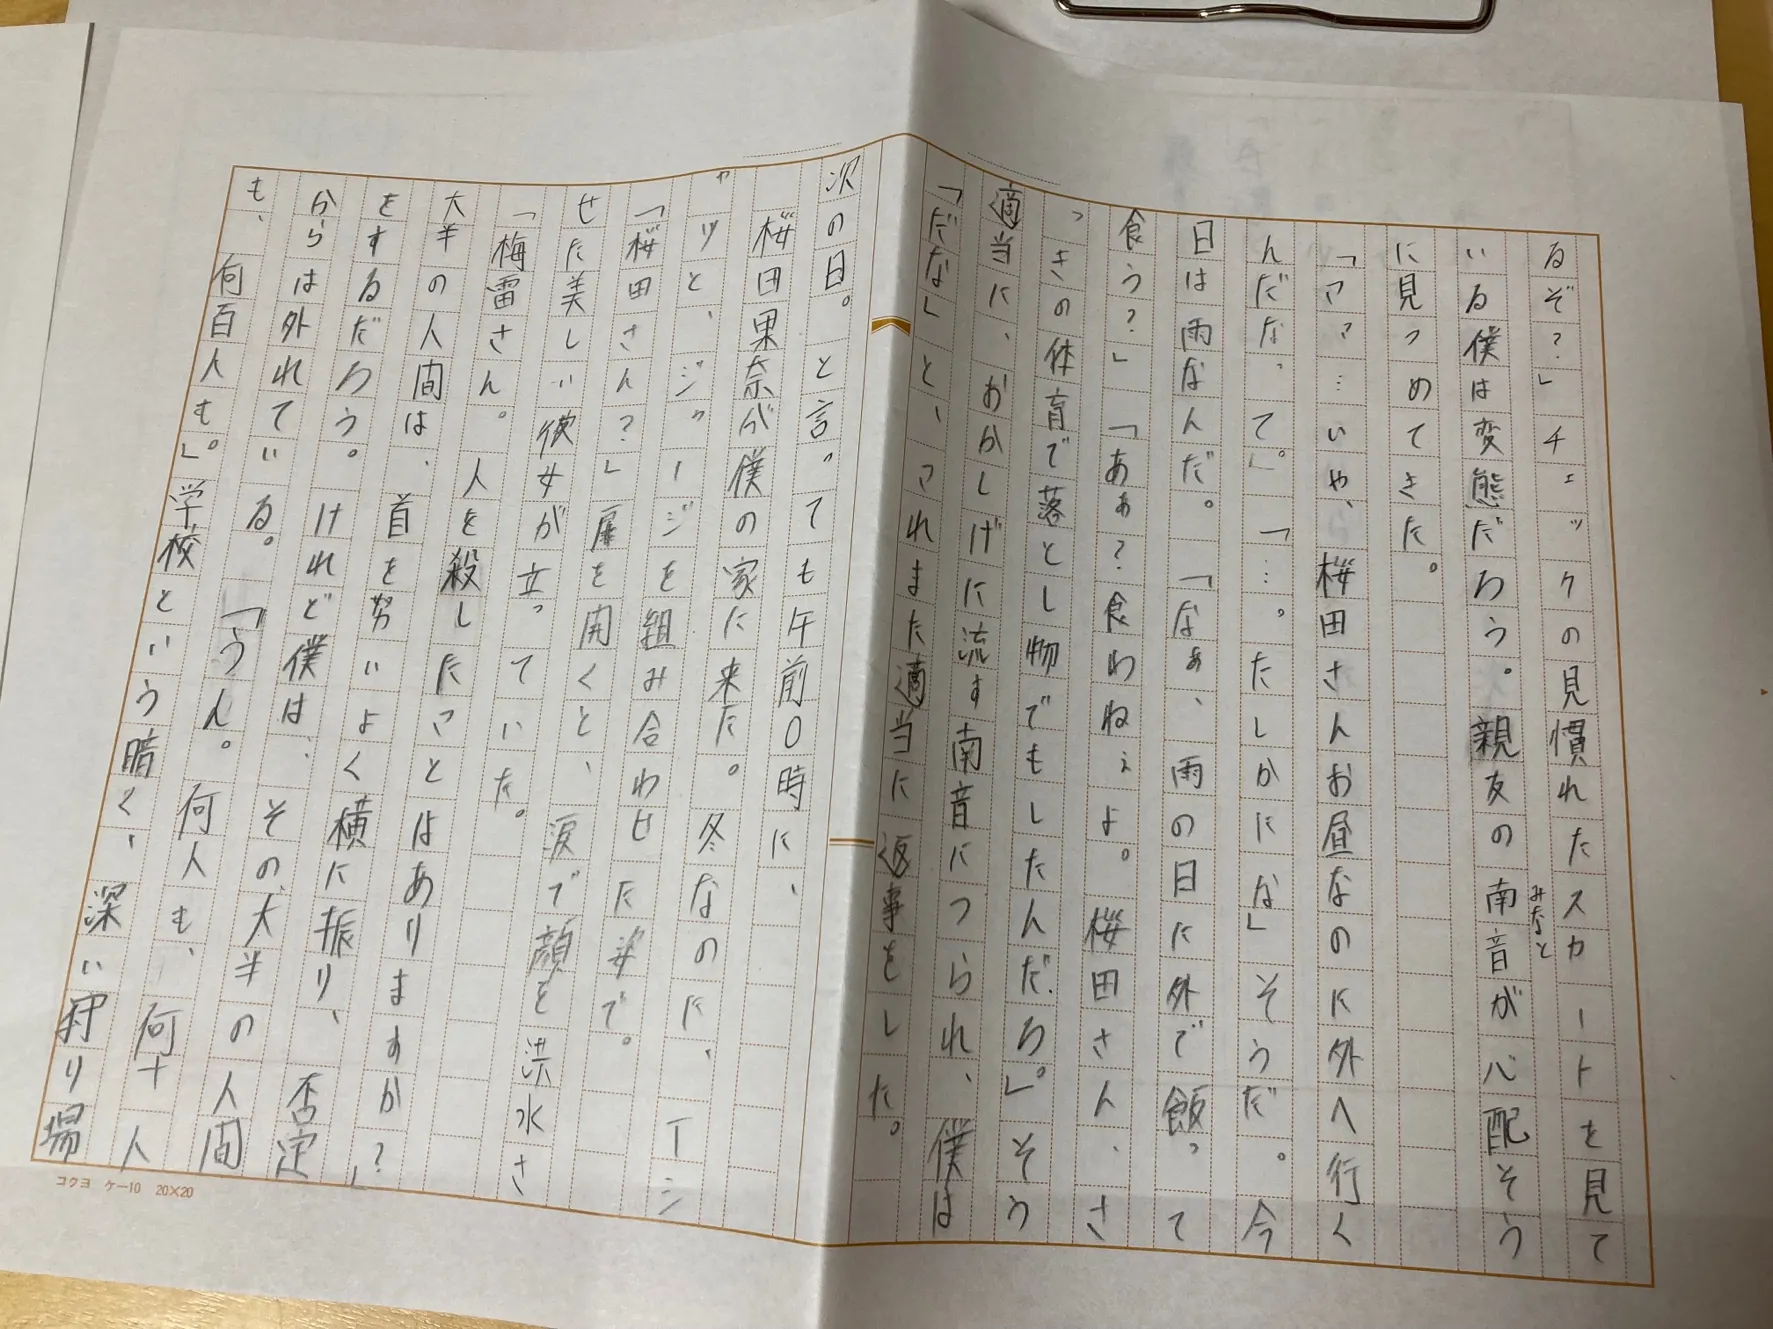 るぞ?」チェックの見慣れたスカートを見て
いる僕は変態だろう。親友の南音が心配そう
みなと
に見つめてきた。
「あ…いや、桜田さんお昼なのに外へ行く
んだなって。」「…。たしかにな」そうだ。今
日は雨なんだ。「なぁ、雨の日に外で飯って
食う?」「あぁ?食わねぇよ。桜田さん、さ
っきの体育で落とし物でもしたんだろ。」そう
適当に、おかしげに流す南音につられ、僕は
「だな」と、これまた適当に返事をした。
次の日。と言っても午前0時に、
桜田果奈が僕の家に来た。冬なのに、Tーシ
ャツと、ジャージを組み合わせた姿で。
「桜田さん?」扉を開くと、涙で顔を洪水さ
せた美しい彼女が立っていた。
「梅雷さん。人を殺したことはありますか?」
大半の人間は、首を努いよく横に振り、否定
をするだろう。けれど僕は、その、大半の人間
からは外れている。「うん。何人も、何十人
も、何百人も。」学校という暗く、深い狩り場
コクヨ ケー10 20×20